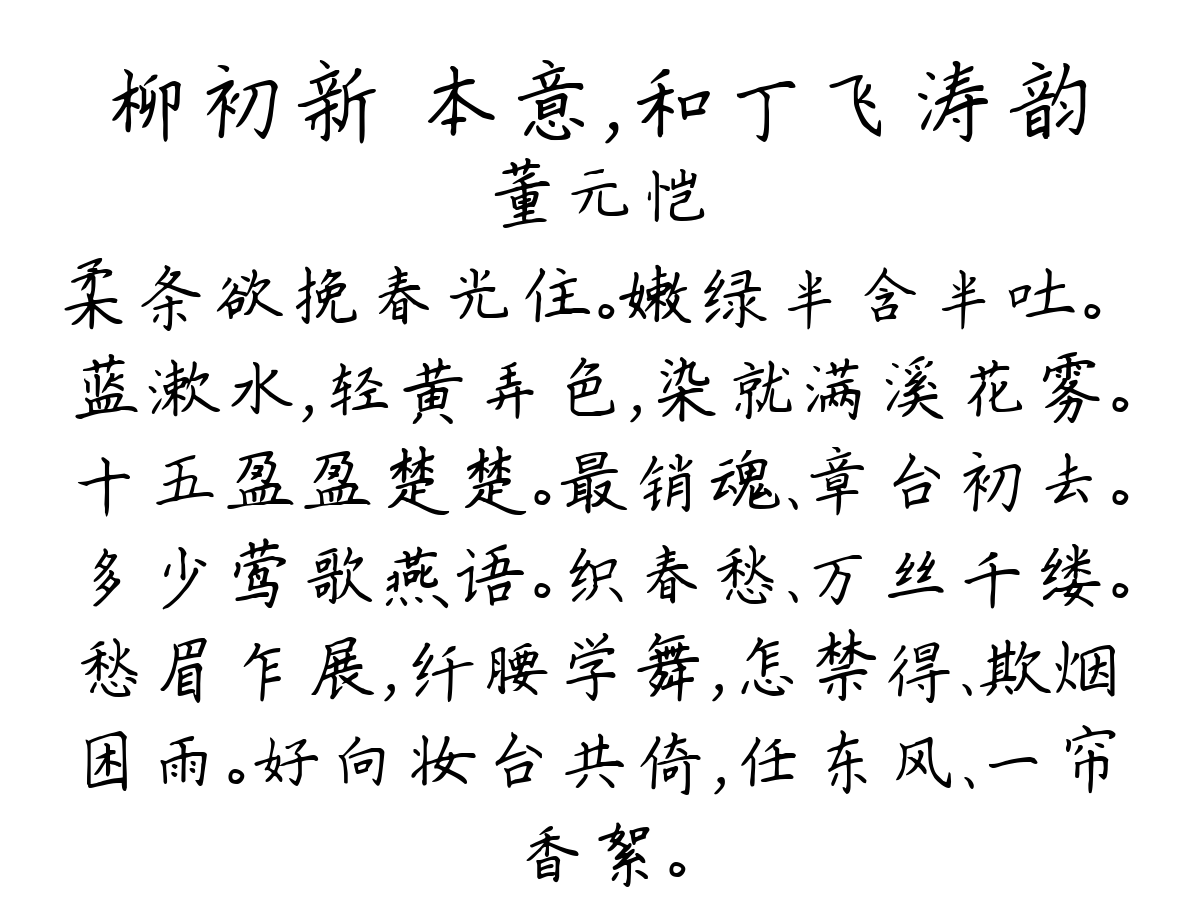 柳初新 本意,和丁飞涛韵
董元恺
柔条欲挽春光住。嫩绿半含半吐。
蓝漱水,轻黄弄色,染就满溪花雾。
十五盈盈楚楚。最销魂、章台初去。
多少莺歌燕语。织春愁、万丝千缕。
愁眉乍展,纤腰学舞,怎禁得、欺烟
困雨。好向妆台共倚,任东风、一帘
香絮。